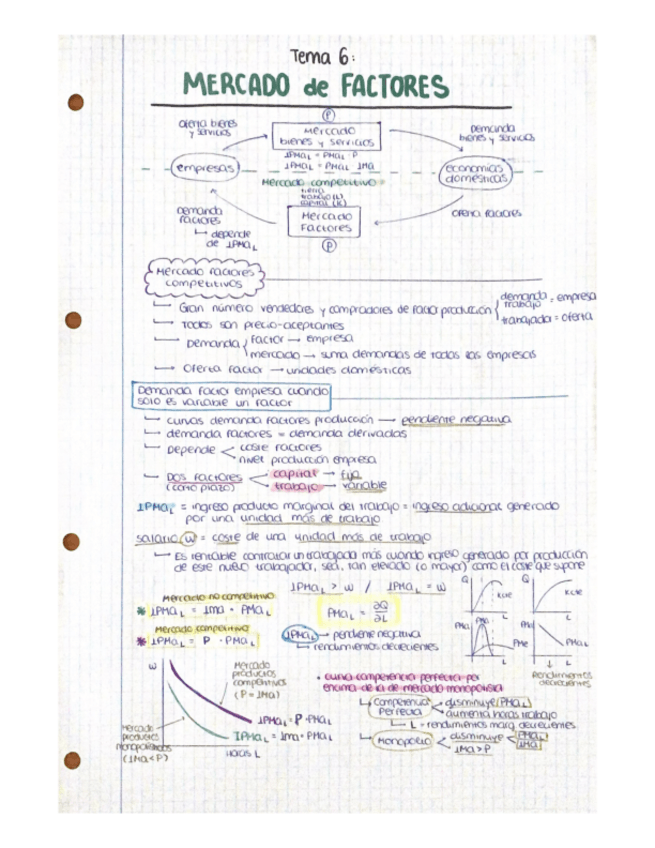 Tema 6:
MERCADO de FACTORES
P
oferta bienes y servicios
Mercado bienes y servicios
Demanda bienes y servicios
IPMaL = PMaL · P
IPMaL = PMaL · IMa
empresas
economías domésticas
Mercado competitivo
tierra
trabajo (L)
capital (K)
Demanda factores
↳ depende de IPMaL
Mercado Factores
oferta factores
P
Mercado factores competitivos
Gran número vendedores y compradores de factor producción { demanda trabajo = empresa
trabajada = oferta
Todos son precio-aceptantes
Demanda { Factor → empresa
mercado → suma demandas de todas las empresas
Oferta factor → unidades domésticas
Demanda factor empresa cuando
solo es variable un factor
curvas demanda factores producción → pendiente negativa
demanda factores = demanda derivadas
Depende < coste factores
nivel producción empresa
DOS FACTORES < capital → fijo
(corto plazo) trabajo → variable
IPMaL = ingreso producto marginal del trabajo = ingreso adicional generado
por una unidad más de trabajo
salario w = coste de una unidad más de trabajo
Es rentable contratar un trabajador más cuando ingreso generado por producción
de este nuevo trabajador, sea, tan elevado (o mayor) como el coste que supone
IPMaL > w / IPMaL = w
Mercado no competitivo
* IPMaL = Ima · PMaL
PMaL = ∂Q/∂L
Mercado competitivo
* IPMaL = P · PMaL
IPMaL → pendiente negativa
rendimientos decrecientes
Q
Kcte
L
Q
Kcte
L
PMa
PMe
L
PMa
PMaL
L
Rendimientos decrecientes
w
Mercado productos competitivos (P = IMa)
IPMaL = P · PMaL
IPMaL = Ima · PMaL
Mercado productos monopolísticos (IMa < P)
Horas L
• curva competencia perfecta por
encima de la de mercado monopolista
Competencia Perfecta → disminuye PMaL
aumenta horas trabajo
L = rendimientos marg decrecientes
Monopolio < disminuye < PMaL
IMa
IMa > P